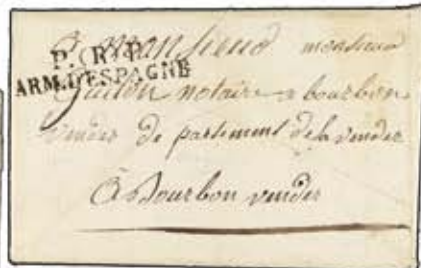 P.(R).P.
ARM.D'ESPAGNE
a monsieud monsieud
notaire a bourbon
vendee de partiment de la vendee
A Bourbon vendee